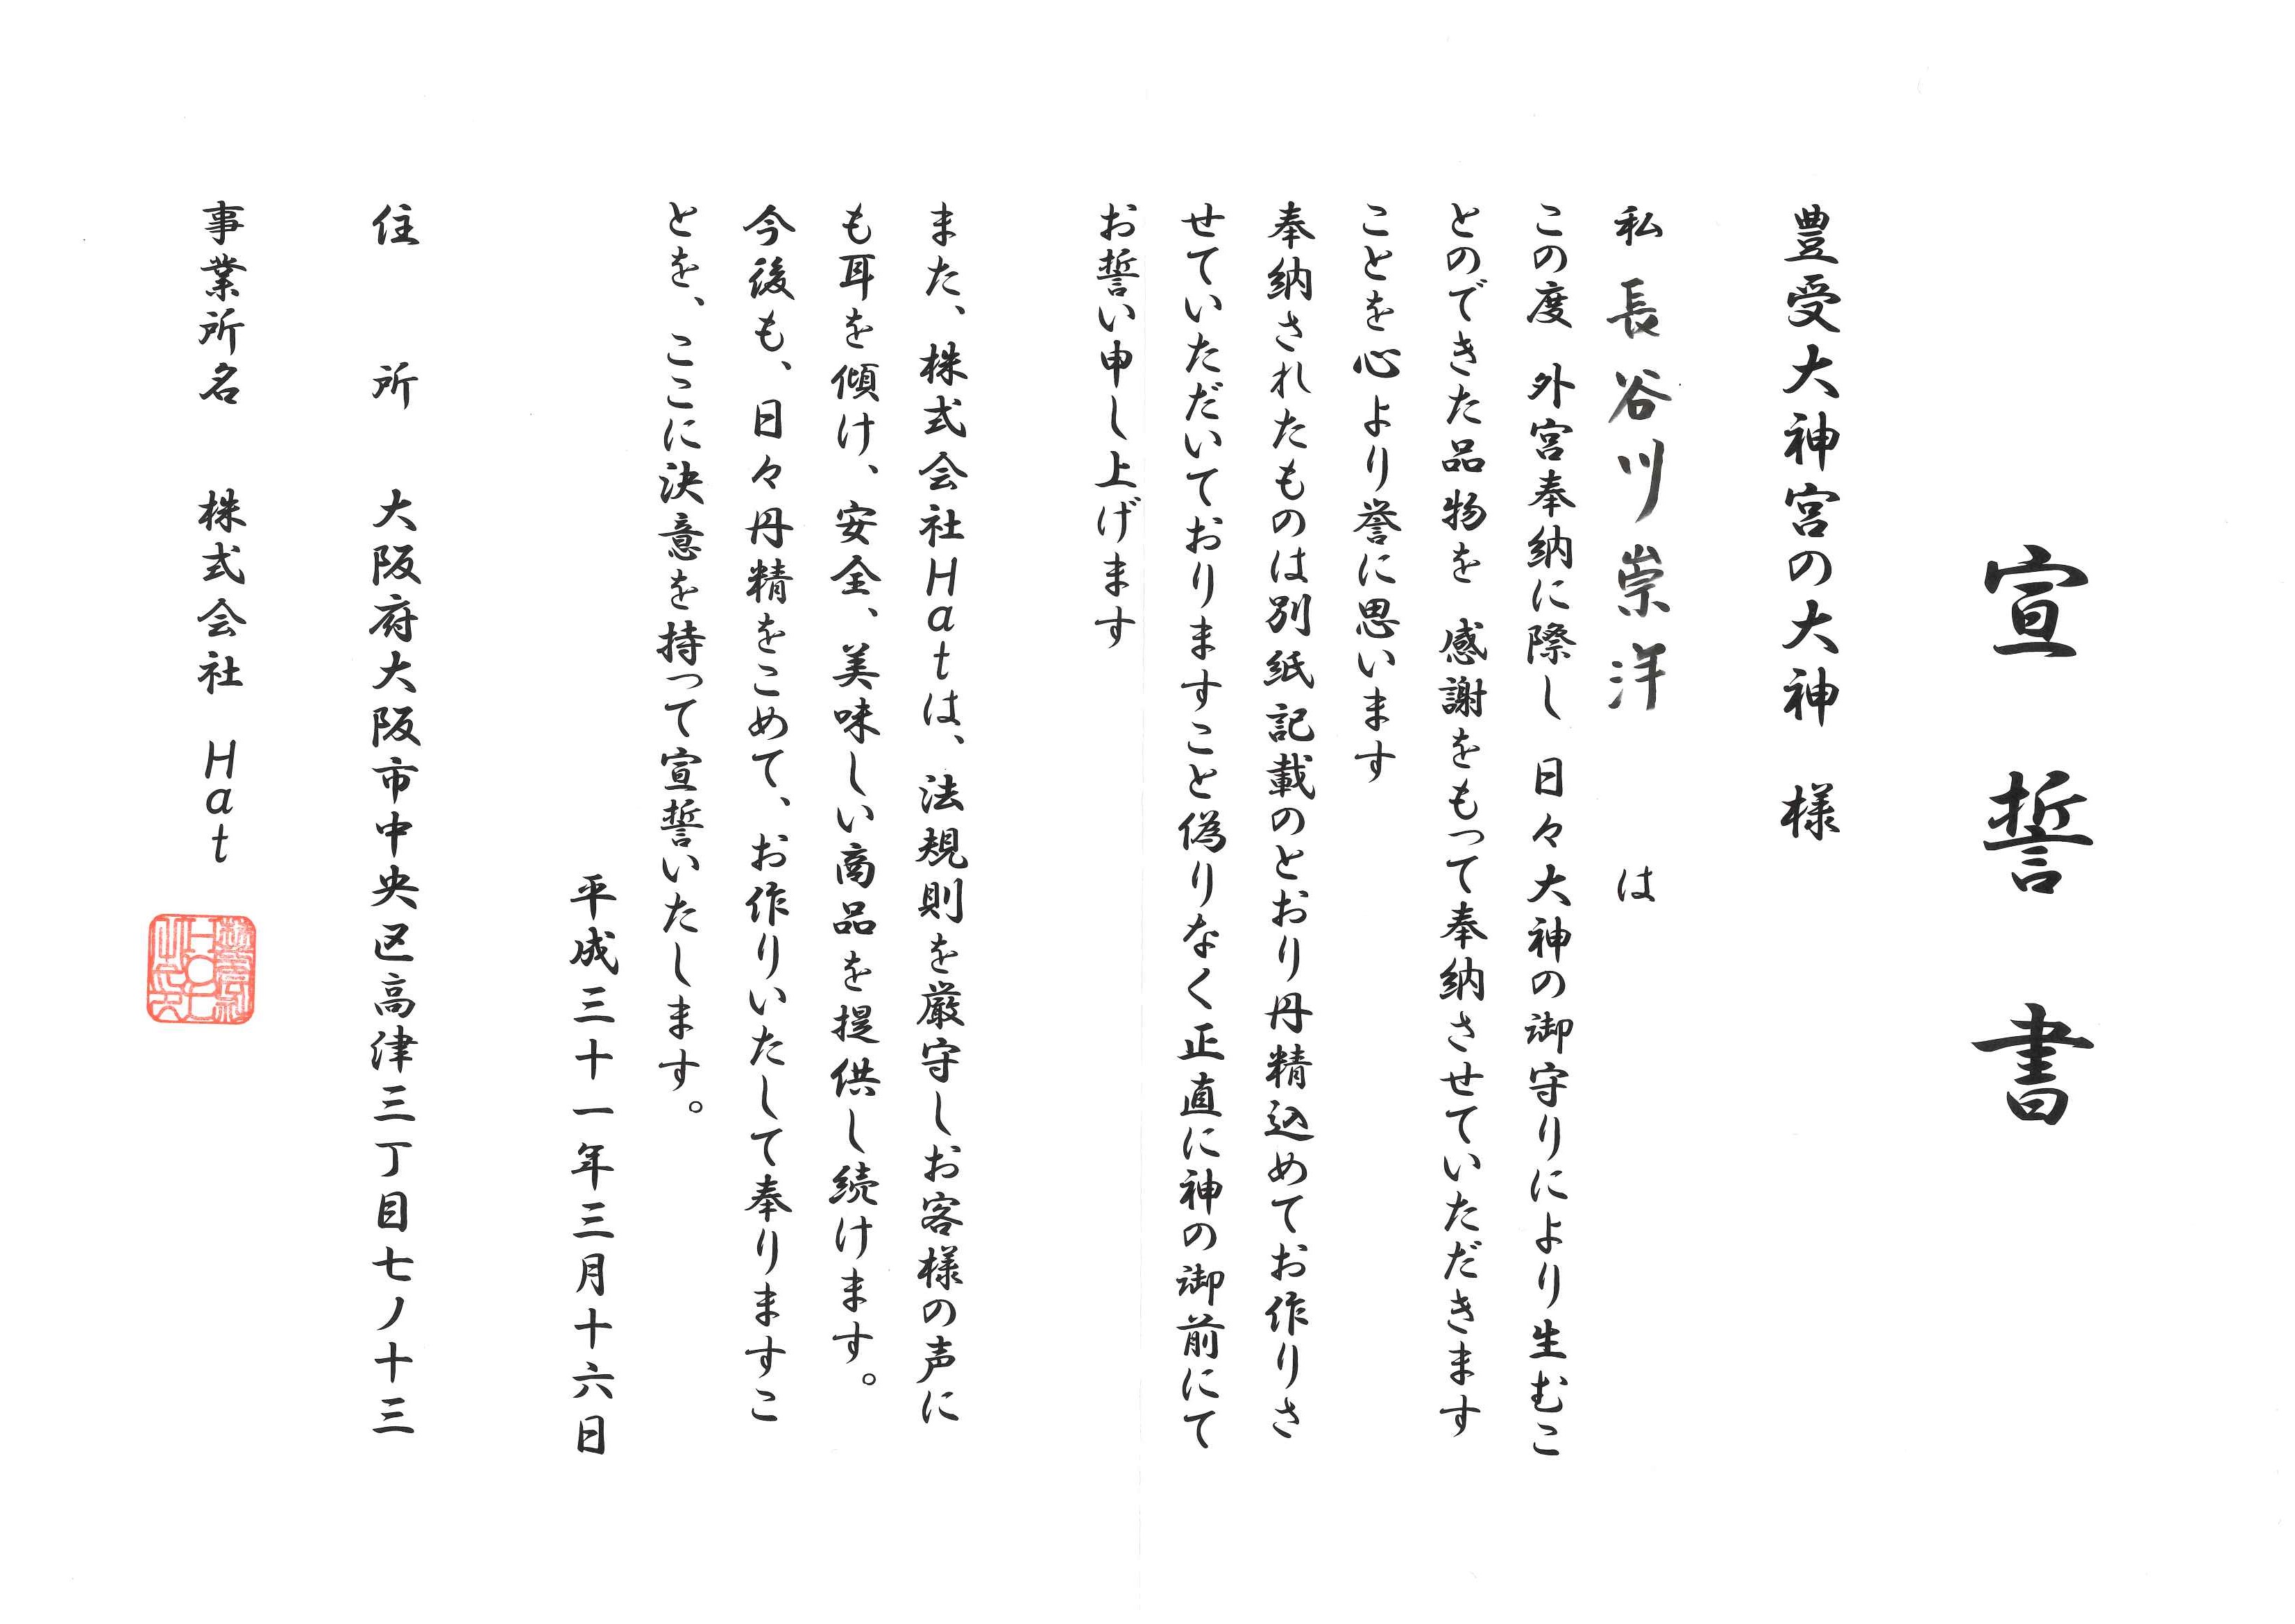 宣誓書
豊受大神宮の大神 様
私 長谷川崇洋 は
この度 外宮奉納に際し 日々大神の御守りにより生むこ
とのできた品物を 感謝をもって奉納させていただきます
ことを心より誉に思います
奉納されたものは別紙記載のとおり丹精込めてお作りさ
せていただいておりますこと偽りなく正直に神の御前にて
お誓い申し上げます
また、株式会社Hatは、法規則を厳守しお客様の声に
も耳を傾け、安全、美味しい商品を提供し続けます。
今後も、日々丹精をこめて、お作りいたして奉りますこ
とを、ここに決意を持って宣誓いたします。
平成三十一年三月十六日
住所 大阪府大阪市中央区高津三丁目七ノ十三
事業所名 株式会社 Hat